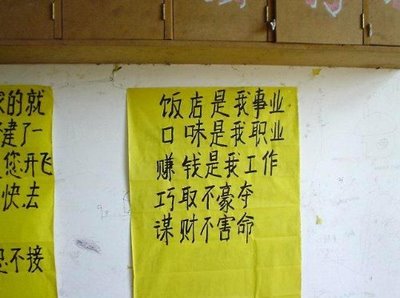 家的就
建了一
您开飞
快去
您不接
饭店是我事业
口味是我职业
赚钱是我工作
巧取不豪夺
谋财不害命